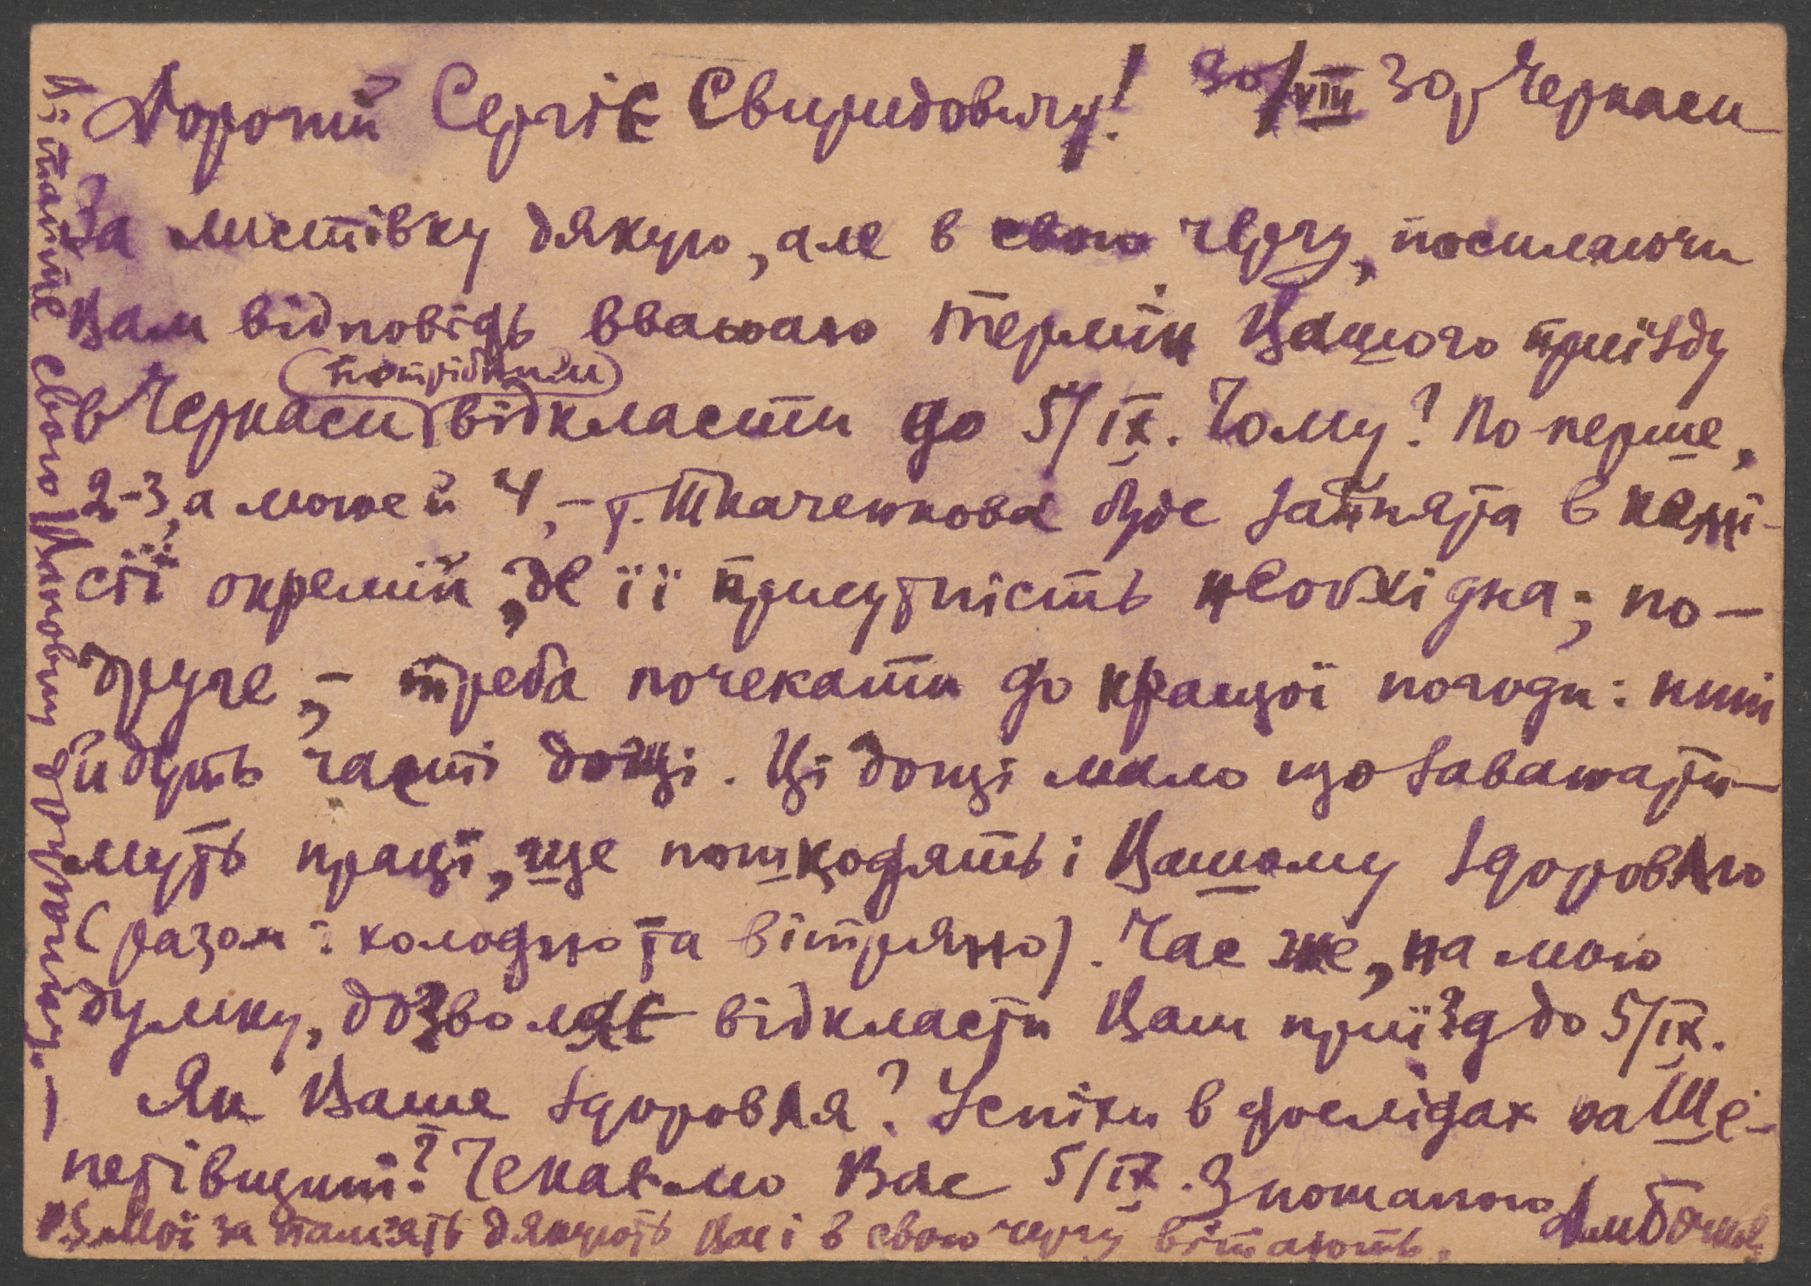 Дорогий Сергіє Свиридовичу! 30/VIII 30 р Черкаси
За листівку дякую, але в свою чергу, посилаючи
Вам відповідь вважаю термін Вашого приїзду
(потрібним)
в Черкаси відкласти до 5/IX. Чому? По-перше,
2-3, а може й 4, – т. Ткаченкова буде зайнята в комі-
сії окремій, де її присутність необхідна; по-
друге, – треба почекати до кращої погоди: нині
йдуть часті дощі. Ці дощі мало що заважати-
муть праці, ще пошкодять і Вашому здоровлю
(разом і холодно та вітряно). Час же, на мою
думку, дозволяє відкласти Ваш приїзд до 5/IX.
Як Ваше здоровля? Успіхи в дослідах на Ше-
петівщині? Чекаємо Вас 5/IX. З пошаною
Мої за пам'ять дякують Вас і в свою чергу вітають.
Вітайте свою Шановну дружину. –